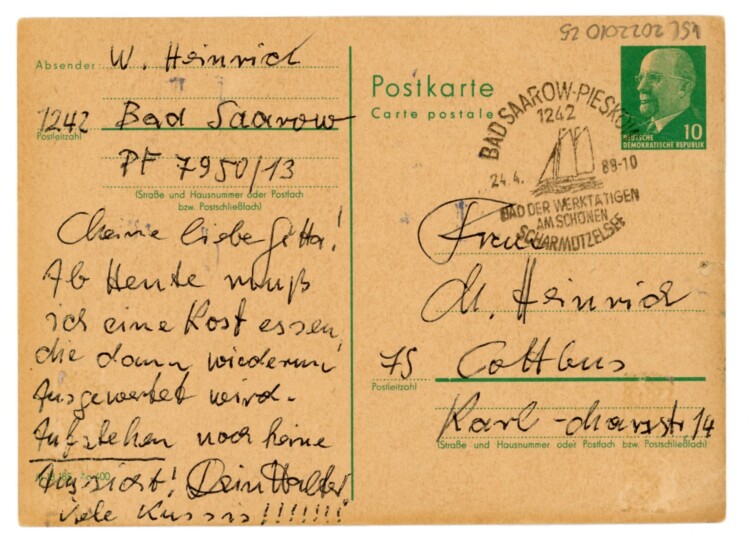 VSL 2022010 25
Absender W. Heinrich
1242 Bad Saarow
Postleitzahl
PF 7950/13
(Straße und Hausnummer oder Postfach
bzw. Postschließfach)
Meine liebe Gitta!
Ab Heute muß
ich eine Kost essen,
die dann wiederum
Ausgewertet wird.
Aufstehen noch keine
Aussicht! Dein Walter
viele Kussis!!!!!!!
Postkarte
Carte postale
BAD SAAROW-PIESKOW
1242
24.4. 89-10
BAD DER WERKTÄTIGEN
AM SCHÖNEN
SCHARMÜTZELSEE
10
DEUTSCHE
DEMOKRATISCHE REPUBLIK
Frau
M. Heinrich
75 Cottbus
Postleitzahl
Karl-Marxstr. 14
(Straße und Hausnummer oder Postfach bzw. Postschließfach)